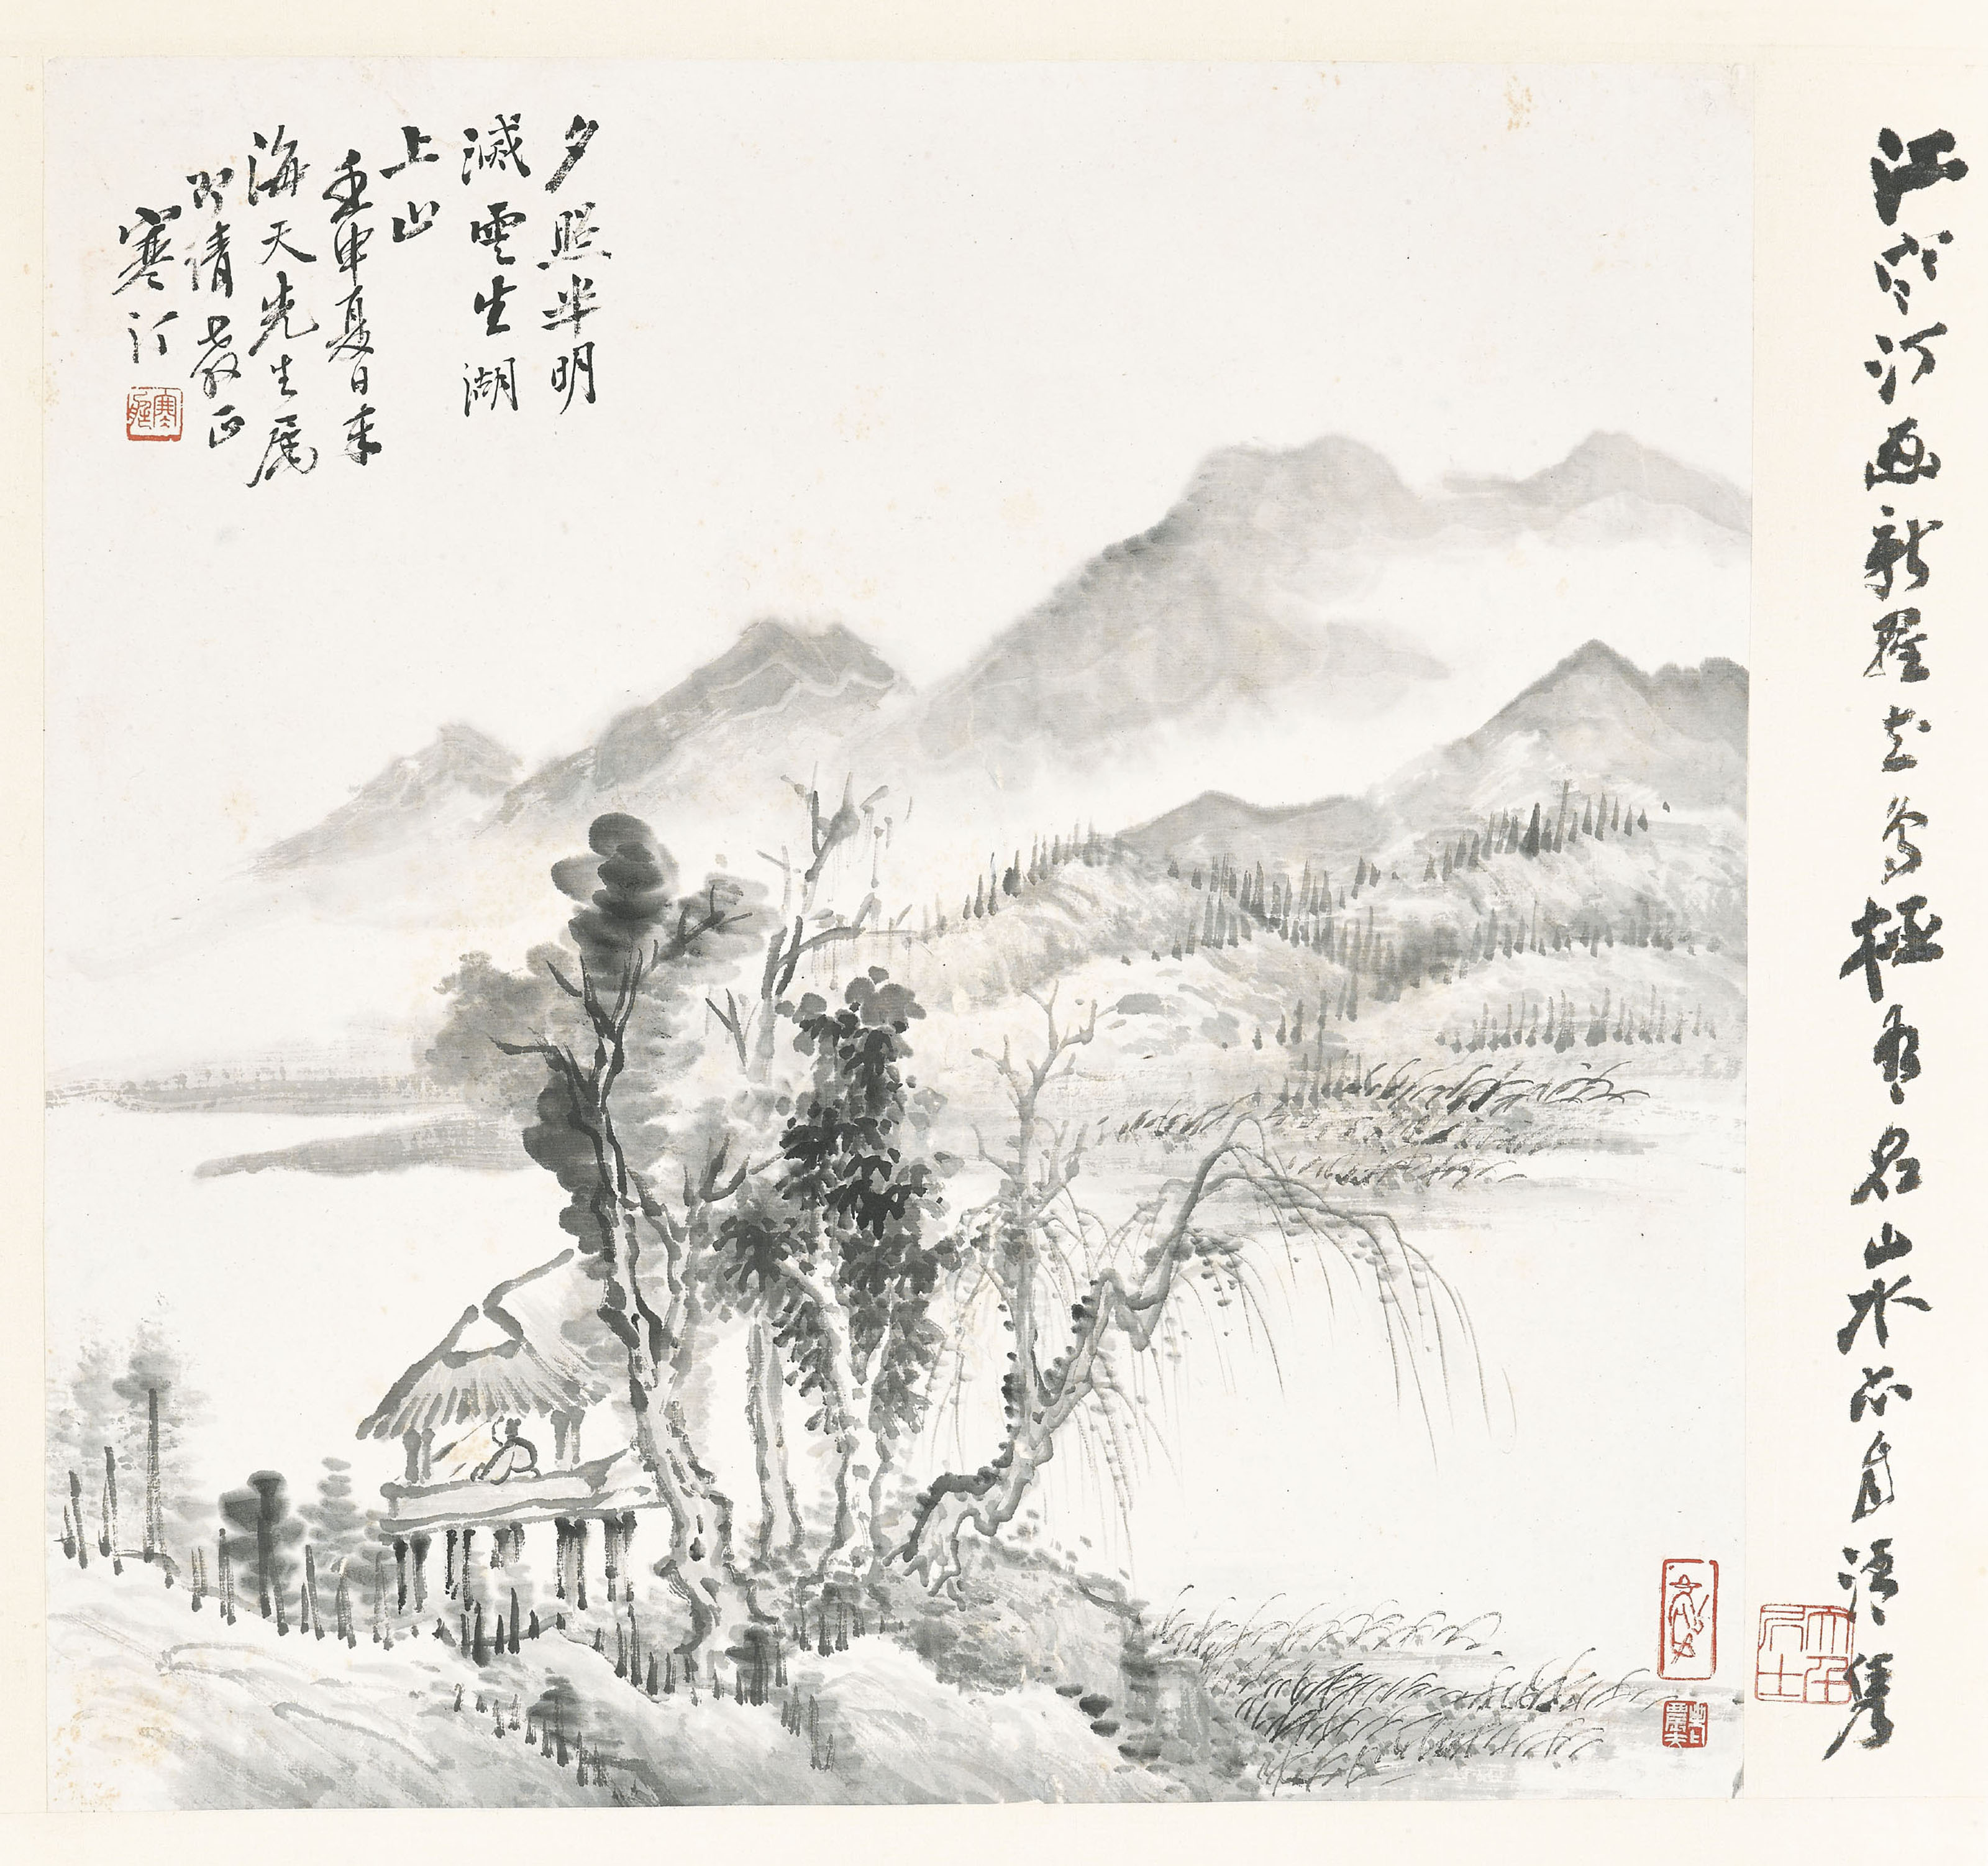 江寒汀画新羅花鳥極有名山水亦自清雋
夕照半明
滅雲生湖
上山
壬申夏日奉
海天先生屬
即請教正
寒汀